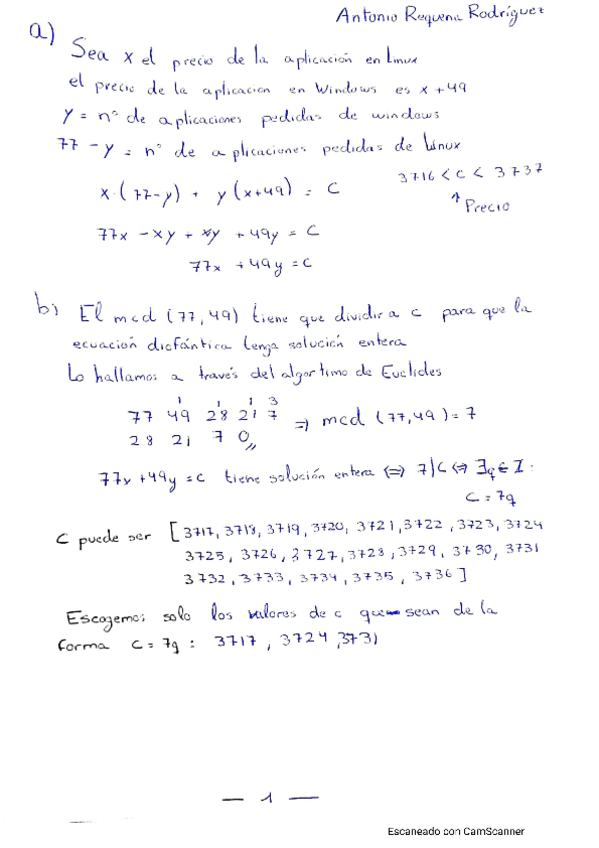 Antonio Requena Rodríguez
a)
Sea x el precio de la aplicación en Linux
el precio de la aplicacion en Windows es x + 49
y = nº de aplicaciones pedidas de windows
77 - y = nº de aplicaciones pedidas de Linux
x · (77-y) + y (x+49) = C
3716 < C < 3737
↑ Precio
77x - xy + xy + 49y = C
77x + 49y = C
b) El mcd (77, 49) tiene que dividir a c para que la
ecuación diofántica tenga solución entera
Lo hallamos a través del algortimo de Euclides
1 1 1 3
77 49 28 21 7 ⇒ mcd (77,49) = 7
28 21 7 0
77x + 49y = c tiene solución entera ⇔ 7|C ⇔ ∃q ∈ Z :
C = 7q
C puede ser [3717, 3718, 3719, 3720, 3721, 3722, 3723, 3724
3725, 3726, 3727, 3728, 3729, 3730, 3731
3732, 3733, 3734, 3735, 3736]
Escogemos solo los valores de c que sean de la
forma C = 7q : 3717, 3724, 3731
— 1 —
Escaneado con CamScanner